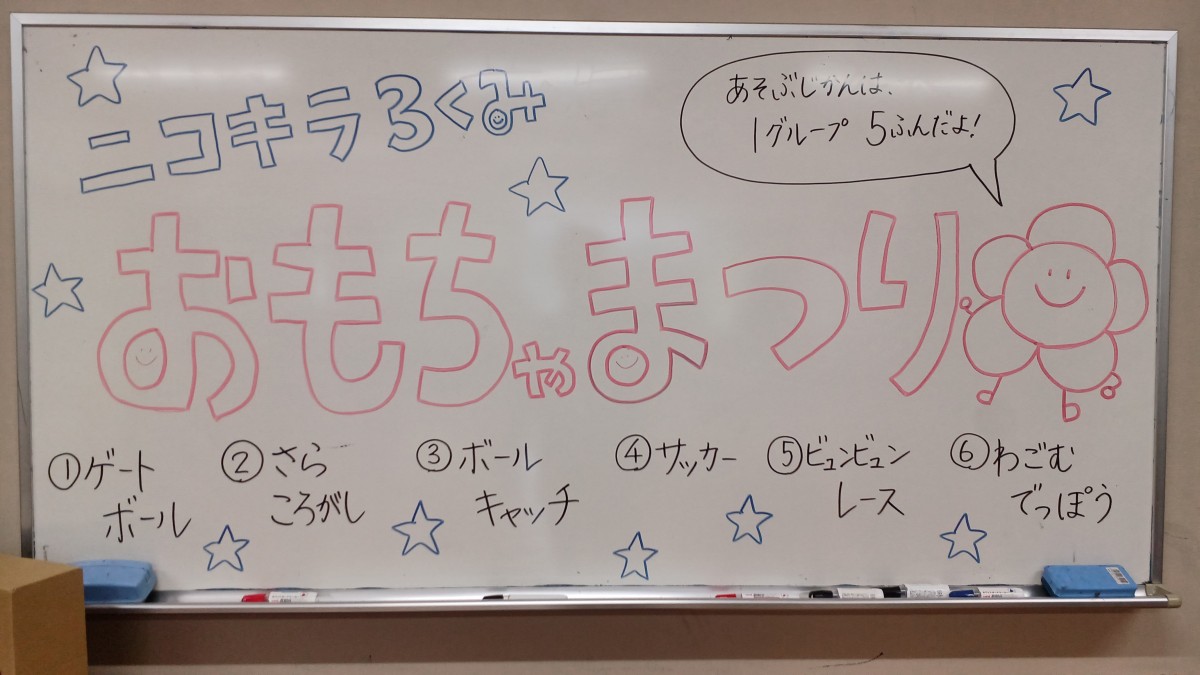 ニコキラ3くみ
あそぶじかんは、
1グループ 5ふんだよ!
おもちゃまつり
①ゲート
ボール
②さら
ころがし
③ボール
キャッチ
④サッカー
⑤ビュンビュン
レース
⑥わごむ
でっぽう